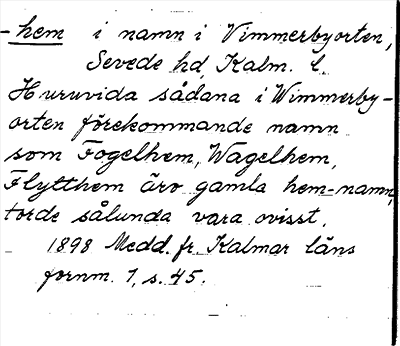 -hem i namn i Vimmerbyorten,
Sevede hd, Kalm. l.
Huruvida sådana i Wimmerby-
orten förekommande namn
som Fogelhem, Wagelhem,
Flytthem äro gamla hem-namn,
torde sålunda vara ovisst.
1898 Medd. fr. Kalmar läns
fornm. 1, s. 45.